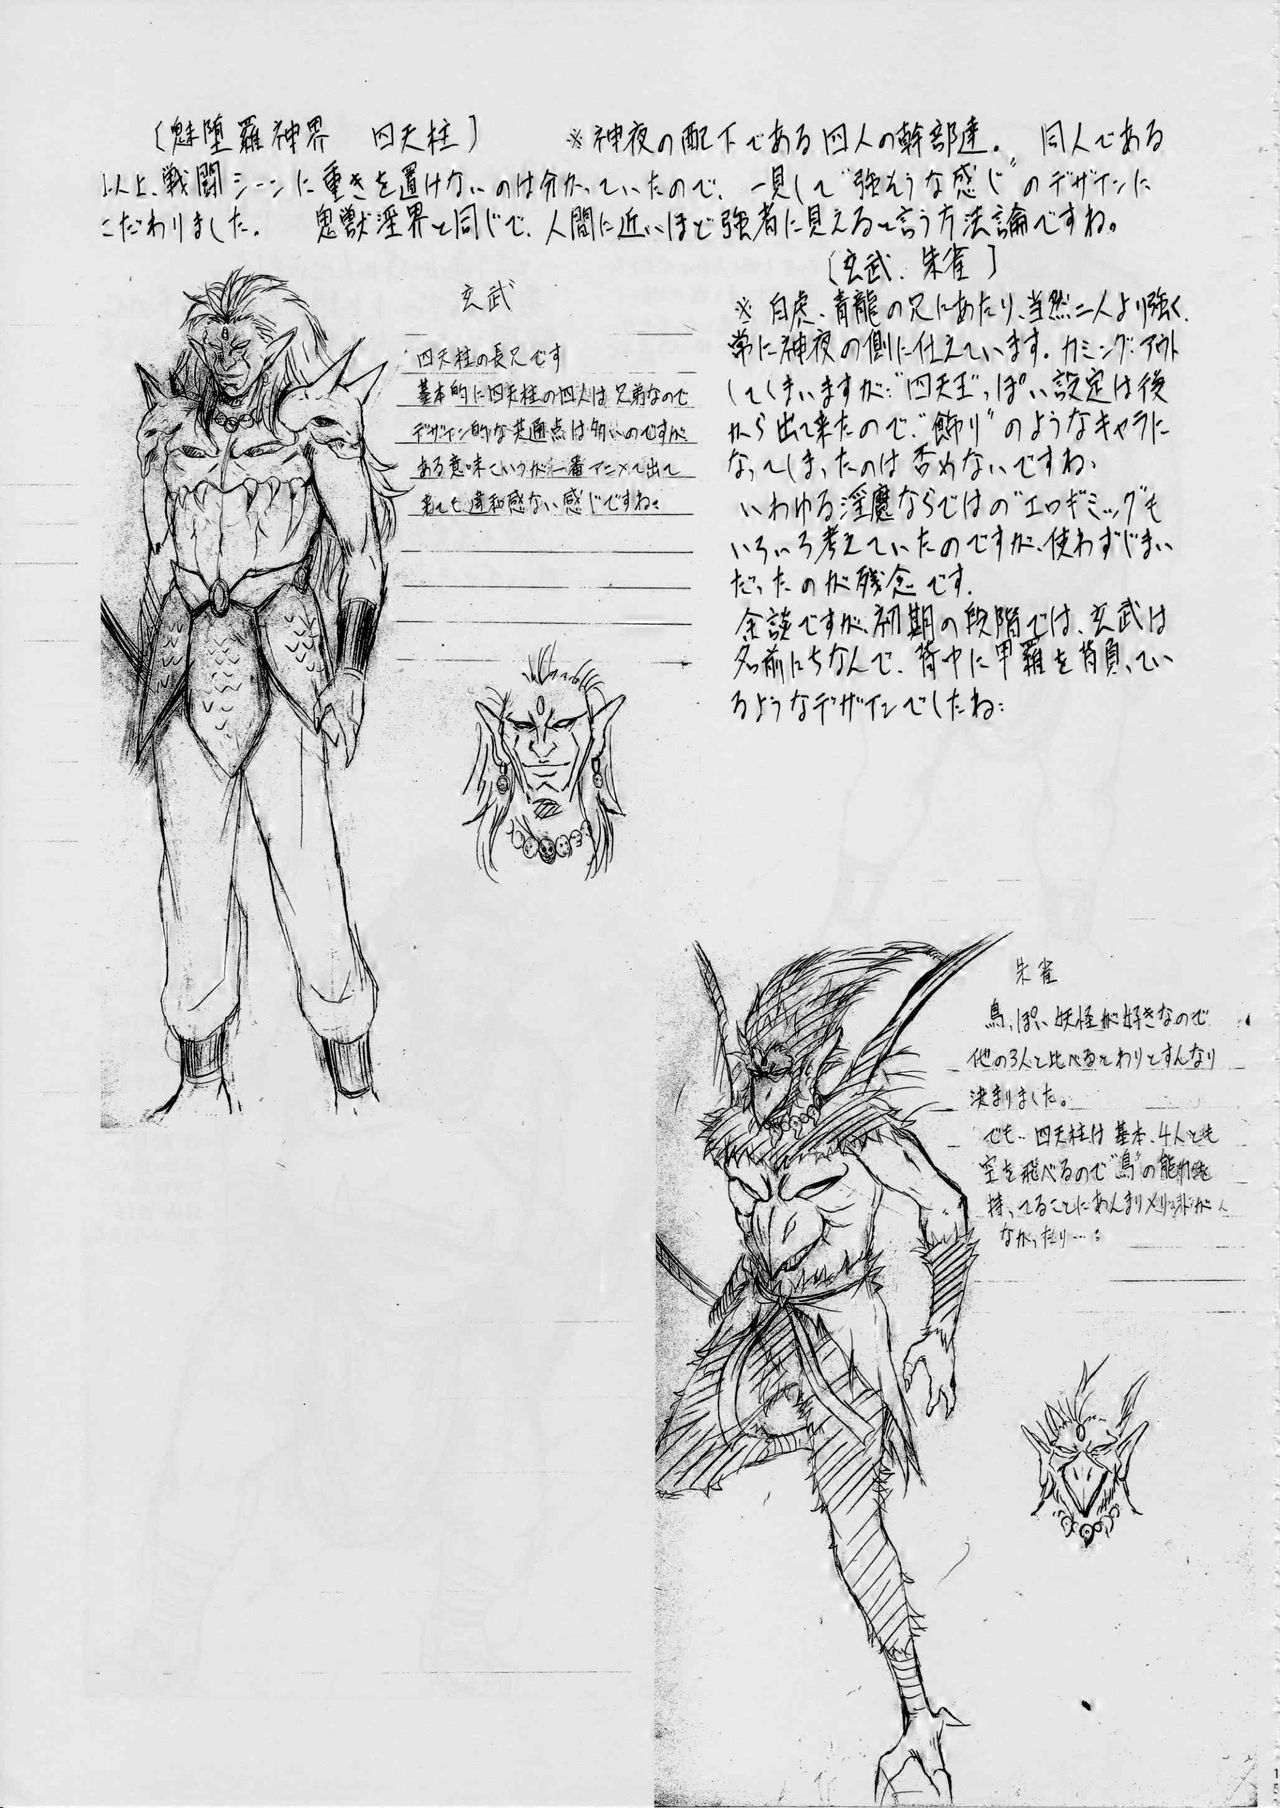 〔魅堕羅神界 四天柱〕 ※神夜の配下である四人の幹部達。 同人である
以上、戦闘シーンに重きを置けないのは分かっていたので、一見して“強そうな感じ”のデザインに
こだわりました。 鬼獣淫界と同じで、人間に近いほど強者に見えると言う方法論ですね。
玄武
四天柱の長兄です
基本的に四天柱の四人は兄弟なので
デザイン的な共通点は多いのですが
ある意味こいつが一番アニメで出て
来ても違和感ない感じですね。
〔玄武、朱雀〕
※ 白虎、青龍の兄にあたり、当然二人より強く、
常に神夜の側に仕えています。カミング・アウト
してしまいますが“四天王”っぽい設定は後
から出て来たので、“飾り”のようなキャラに
なってしまったのは否めないですね。
いわゆる淫魔ならではの“エロギミック”も
いろいろ考えていたのですが、使わずじまい
だったのが残念です。
余談ですが、初期の段階では、玄武は
名前にちなんで、背中に甲羅を背負ってい
るようなデザインでしたね。
朱雀
鳥っぽい妖怪が好きなので
他の3人と比べるとわりとすんなり
決まりました。
でも…四天柱は基本、4人とも
空を飛べるので“鳥”の能力を
持ってることにあんまりメリットが
なかったり…。